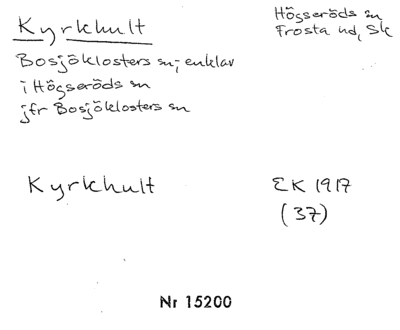 Kyrkhult
Högseröds sn
Frosta hd, Sk
Bosjöklosters sn; enklav
i Högseröds sn
jfr Bosjöklosters sn
Kyrkhult
EK 1917
(37)
Nr 15200